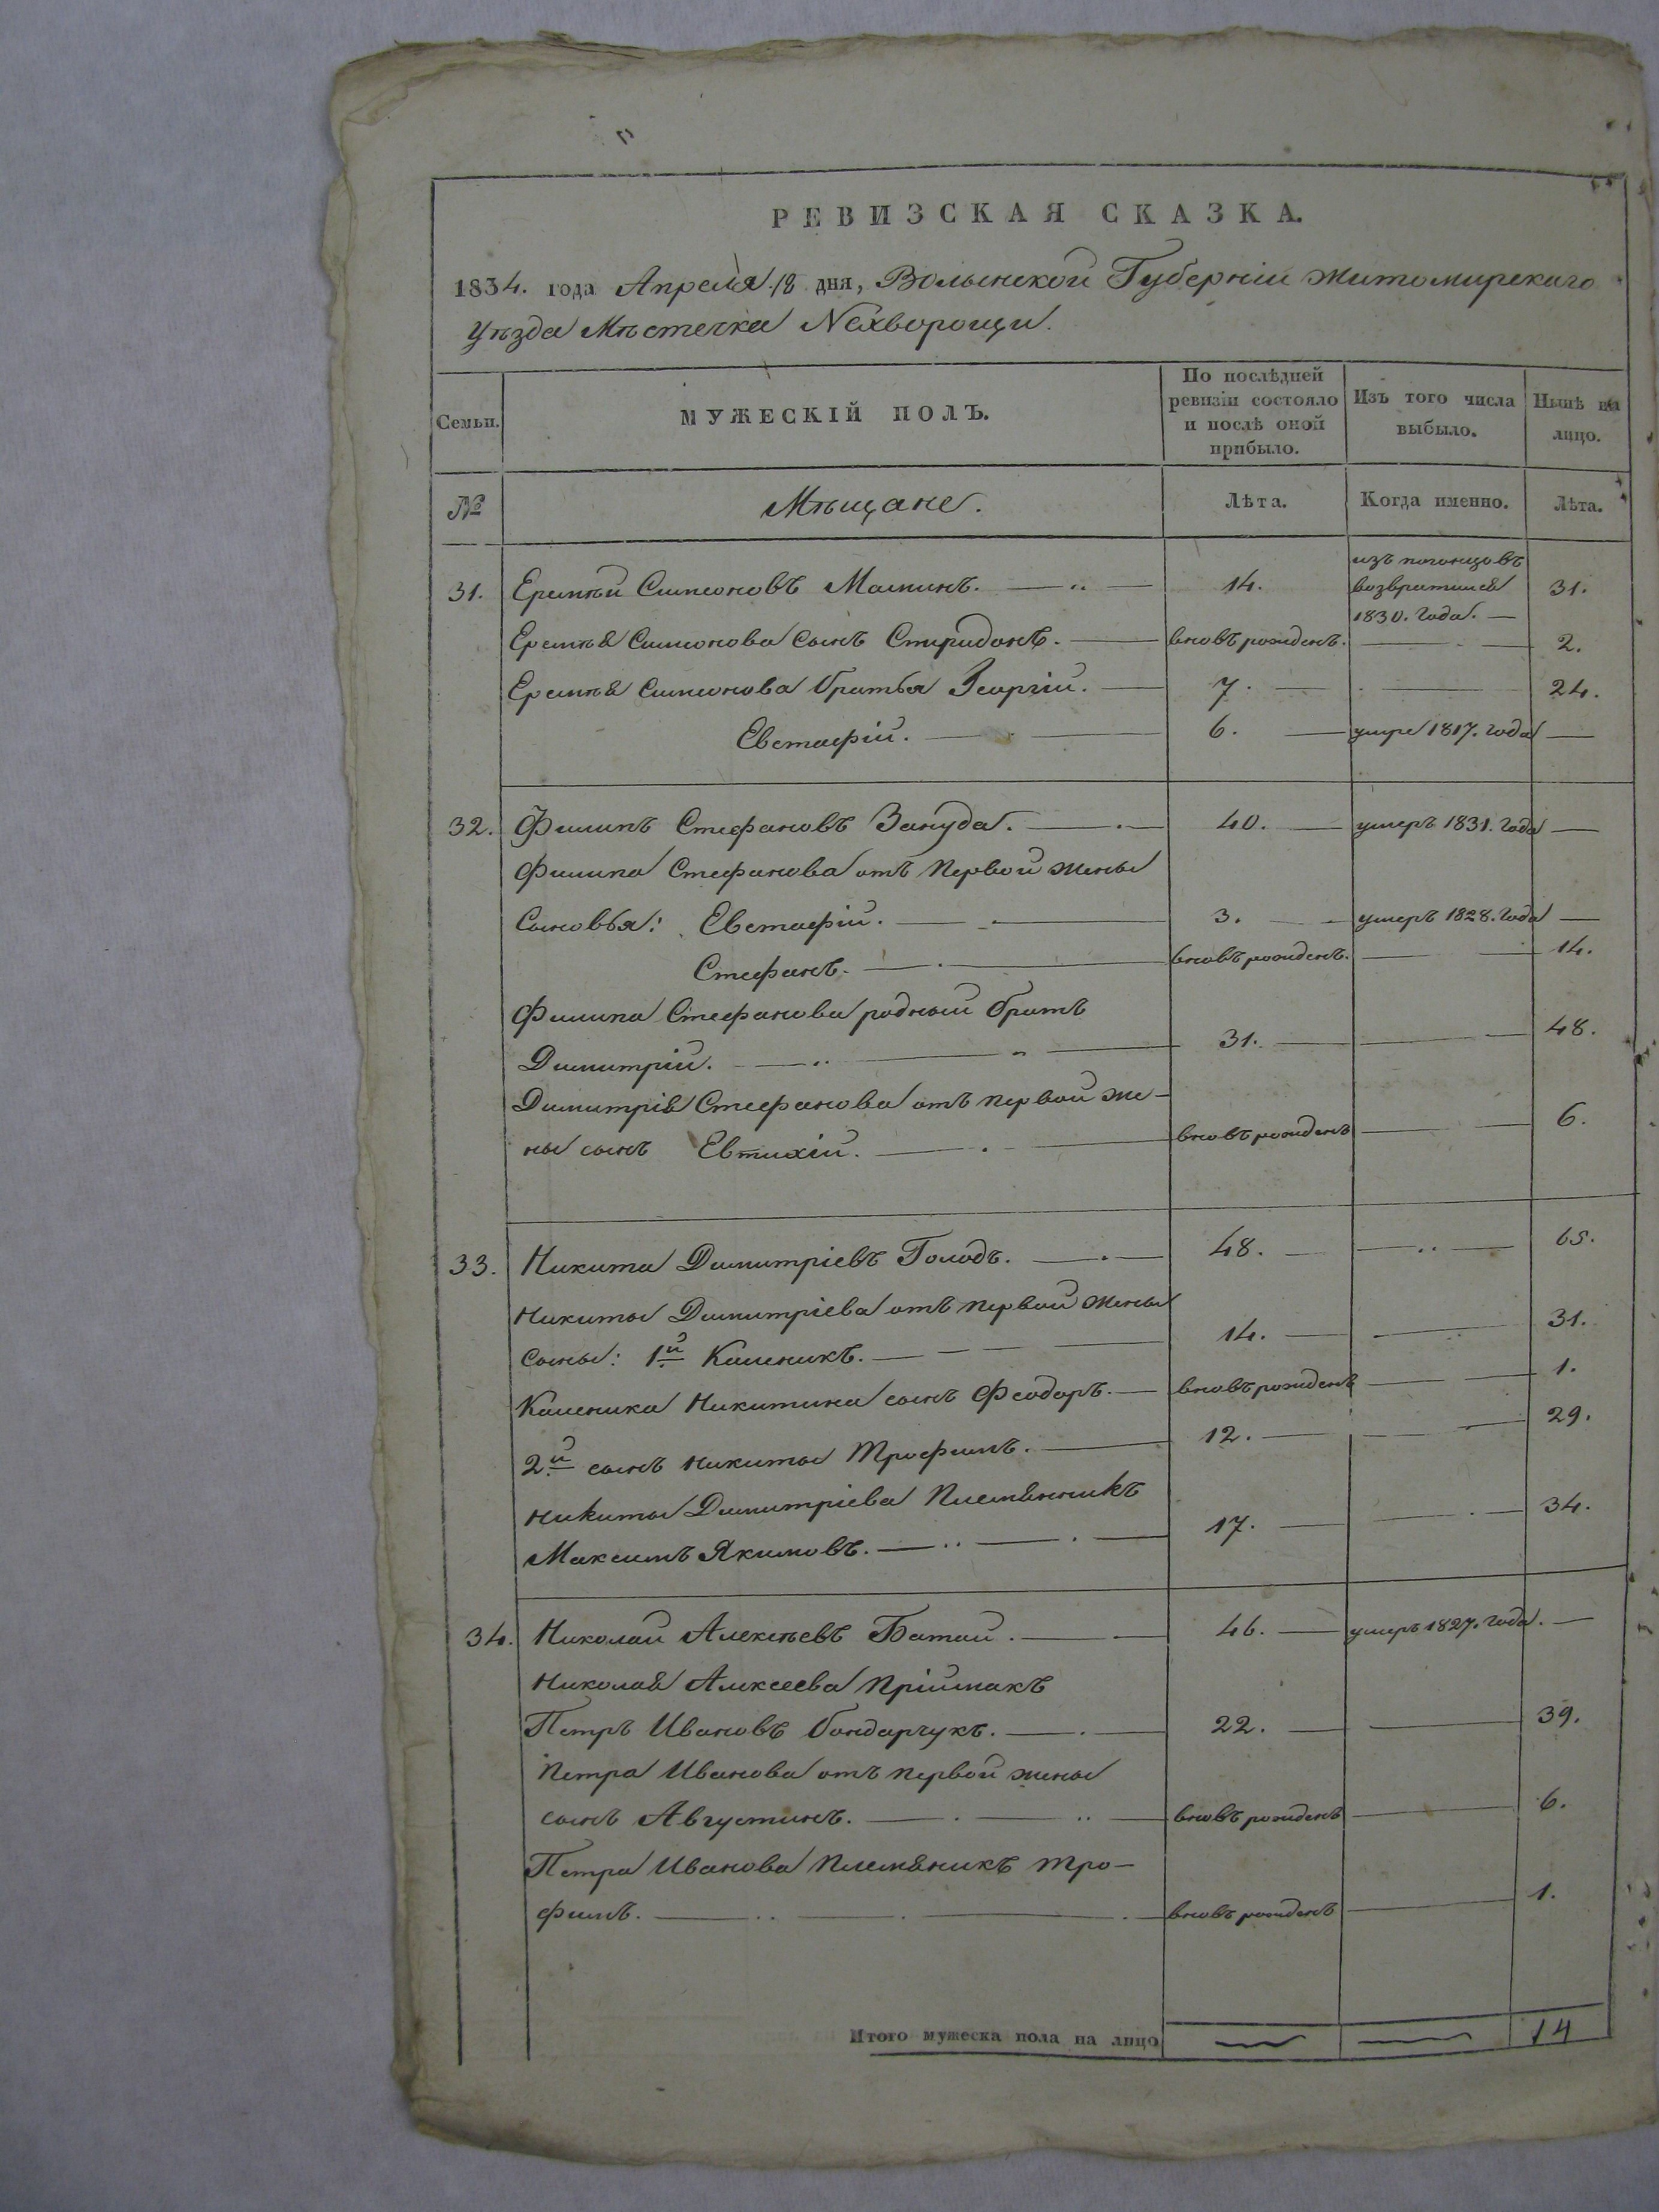 РЕВИЗСКАЯ СКАЗКА.
1834. года Апреля 18 дня, Волынской Губерніи Житомирскаго
Уѣзда Мѣстечка Нехворощи.
Семьи. МУЖЕСКІЙ ПОЛЪ. По послѣдней ревизіи состояло и послѣ оной прибыло. Изъ того числа выбыло. Нынѣ на лицо.
№ Мѣщане. Лѣта. Когда именно. Лѣта.
31. Еремѣй Симеоновъ 14. изъ возвратился 1830. года. 31.
Еремѣя Симеонова сынъ Спиридонъ. вновь рожденъ. 2.
Еремѣя Симеонова братья Георгій. 7. 24.
Евстафій. 6. умре 1817. года
32. Филипъ Стефановъ Зануда. 40. умеръ 1831. года
Филипа Стефанова отъ первой жены
Сыновья: Евстафій. 3. умеръ 1828. года
Стефанъ. вновь рожденъ. 14.
Филипа Стефанова родный братъ
Димитрій. 31. 48.
Димитрія Стефанова отъ первой же-
ны сынъ Евтихій. вновь рожденъ 6.
33. Никита Димитріевъ Голодъ. 48. 65.
Никиты Димитріева отъ первой жены
сыны: 1й Каленикъ. 14. 31.
Каленика Никитина сынъ Феодоръ. вновь рожденъ 1.
2й сынъ Никиты Трофимъ. 12. 29.
Никиты Димитріева Племянникъ
Максимъ Якимовъ. 17. 34.
34. Николай Алексѣевъ Батай. 46. умеръ 1827. года.
Николая Алексеева Пріймакъ
Петръ Ивановъ Бондарчукъ. 22. 39.
Петра Иванова отъ первой жены
сынъ Августинъ. вновь рожденъ 6.
Петра Иванова Племяникъ Тро-
фимъ. вновь рожденъ 1.
Итого мужеска пола на лицо 14